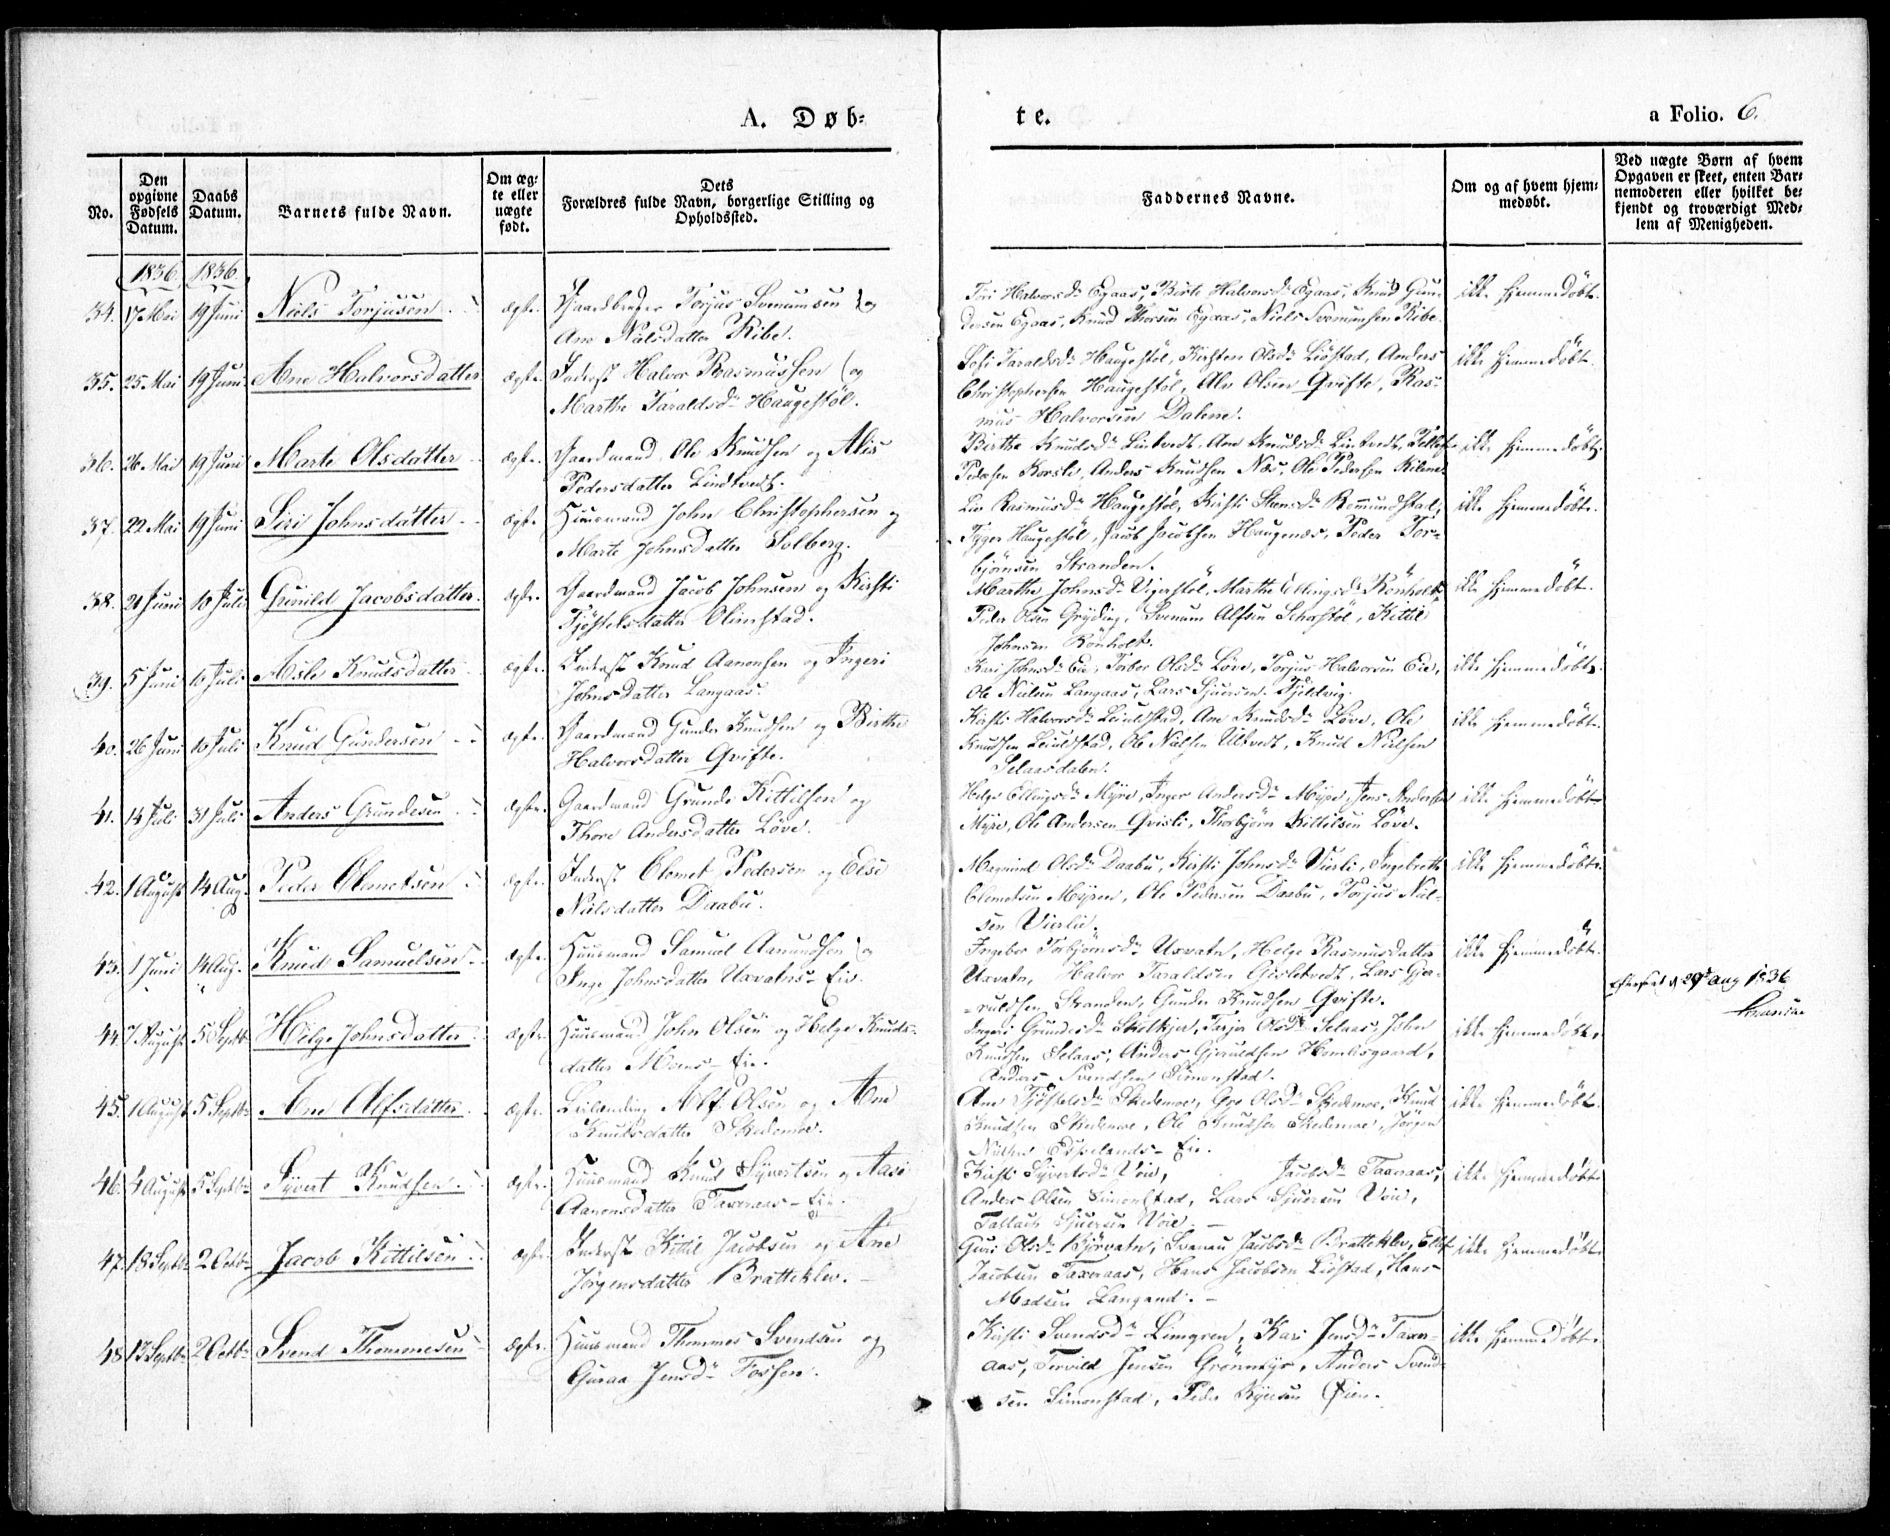 A. Døb=
te.
a Folio. 6.
No.
Den
opgivne
Fødsels
Datum.
Daabs
Datum.
Barnets fulde Navn.
Om æg=
te eller
uægte
født.
Dets
Forældres fulde Navn, borgerlige Stilling og
Opholdssted.
Faddernes Navne.
Om og af hvem hjem=
medøbt.
Ved uægte Børn af hvem
Opgaven er skeet, enten Bar=
nemoderen eller hvilket be=
kjendt og troværdigt Med=
lem af Menigheden.
1836. 1836
34. 17 Mai 19 Juni Niels Torjusen ægte. Gaardbruger Torjus Svenumsen og
Ane Nielsdatter Ribe.
Halvorsd. Egaas, Birte Halvorsd. Egaas, Knud Gun-
dersen Egaas, Knud Thorsen Egaas, Niels Svenumsen Ribe.
ikke hjemmedøbt.
35. 25 Mai 19 Juni Ane Halvorsdatter ægte. Inderst Halvor Rasmussen og
Marthe Taraldsd. Haugestøl.
Taraldsd. Haugestøl, Kirsten Olsd. Liøstad, Anders
Christophersen Haugestøl, Alv Olsen Qvifte, Ras-
mus Halvorsen Dalene.
ikke hjemmedøbt.
36. 26 Mai 19 Juni Marte Olsdatter ægte. Gaardmand Ole Knudsen og Alis
Pedersdatter Lindtvedt.
Birthe Knudsd. Lintvedt, Ane Knudsd. Lintvedt, Tellef
Pedersen, Anders Knudsen Næs, Ole Pedersen
ikke hjemmedøbt.
37. 22 Mai 19 Juni Siri Johnsdatter ægte. Huusmand John Christophersen og
Marte Johnsdatter Solberg.
Liv Rasmusd. Haugestøl, Kirsti Rommundstad,
Tyger Haugestøl, Jacob Jacobsen Haugenes, Peder Tor-
bjørnsen Stranden.
ikke hjemmedøbt.
38. 21 Juni 10 Juli Gunild Jacobsdatter. ægte. Gaardmand Jacob Johnsen og Kirsti
Tjøstelsdatter Olimstad.
Marthe Johnsd. Vigerstøl, Marthe Ellingsd. Rønholt,
Peder Olsen Gryting, Svenum Alfsen, Kittil
Johnsen Rønholt.
ikke hjemmedøbt.
39. 5 Juni 10 Juli Asle Knudsdatter ægte. Inderst Knud Aanonsen og Ingeri
Johnsdatter Langaas.
Kari Johnsd. Eie, Torbor Olsd. Løve, Torjus Halvorsen Eie,
Ole Nielsen Langaas, Lars Sjursen
ikke hjemmedøbt.
40. 26 Juni 10 Juli Knud Gundersen ægte. Gaardmand Gunder Knudsen og Birthe
Halvorsdatter Qvifte.
Kirsti Halvorsd. Leiulstad, Ane Knudsd. Løve, Ole
Knudsen Leiulstad, Ole Nielsen Ultvedt, Knud Nielsen
Selaasdalen.
ikke hjemmedøbt.
41. 14 Juli 31 Juli Anders Grundesen ægte. Gaardmand Grunde Kittilsen og
Thore Andersdatter Løve.
Helge Ellingsd. Myre, Inger Andersd. Myre, Jens Andersen
Myre, Ole Andersen Qvisli, Thorbjørn Kittilsen Løve.
ikke hjemmedøbt.
42. 1 August 14 Aug. Peder Clemetsen ægte. Inderst Clemet Pedersen og Else
Nielsdatter Daabu.
Magnild Olsd. Daabu, Kirsti Johnsd. Vierli, Ingebreth
Clemetsen Myren, Ole Pedersen Daabu, Torjus Niel-
sen Vierli.
ikke hjemmedøbt.
43. 1 Juni 14 Aug. Knud Samuelsen ægte. Huusmand Samuel Aamundsen og
Inge Johnsdatter Uxvatns-Eie.
Ingebor Torbjørnsd. Uxvatn, Helge Rasmusdatter
Uxvatn, Halvor Taraldsen Gislitvedt, Lars Gjer-
-ruldsen Stranden, Gunder Knudsen Qvifte.
ikke hjemmedøbt.
Efterseet d 29 Aug 1836
44. 7 August 5 Septb. Helge Johnsdatter ægte. Huusmand John Olsen og Helge Knuds-
datter Moens-Eie.
Ingeri Grundesd., Tarjer Olsd. Selaas, John
Knudsen Selaas, Anders Gjeruldsen,
Anders Svendsen Simonstad.
ikke hjemmedøbt.
45. 1 August 5 Septb. Ane Alfsdatter ægte. Alf Olsen og Ane
Knudsdatter Skedemoe.
Ane Tjøstelsd. Skedemoe, Gro Olsd. Skedemoe, Knud
Knudsen Skedemoe, Ole Knudsen Skedemoe, Jørgen
Nielsen Espelands-Eie.
ikke hjemmedøbt.
46. 4 August 5 Septb. Syvert Knudsen ægte. Huusmand Knud Syvertsen og Aase
Aanonsdatter Taxeraas-Eie.
Kirsti Syvertsd. Voie, Jacobsd. Taxeraas,
Anders Olsen Simonstad, Lars Sjursen Voie,
Tallach Sjursen Voie.
ikke hjemmedøbt
47. 18 Septb. 2 Octb. Jacob Kittilsen ægte. Inderst Kittil Jacobsen og Ane
Jørgensdatter Bratteklev.
Guri Olsd. Bjørvatn, Jacobsd. Bratteklev, Ellef
Jacobsen Taxeraas, Hans Jacobsen Liøstad, Hans
Madsen Langand.
ikke hjemmedøbt.
48. 13 Septb. 2 Octb. Svend Thommesen ægte. Huusmand Thommes Svendsen og
Guroa Jensd. Fossen.
Kirsti Svendsd. Limgren, Kari Jensd. Taxer-
aas, Tervild Jensen Grønmyr, Anders Svend-
sen Simonstad, Peder Øien.
ikke hjemmedøbt.